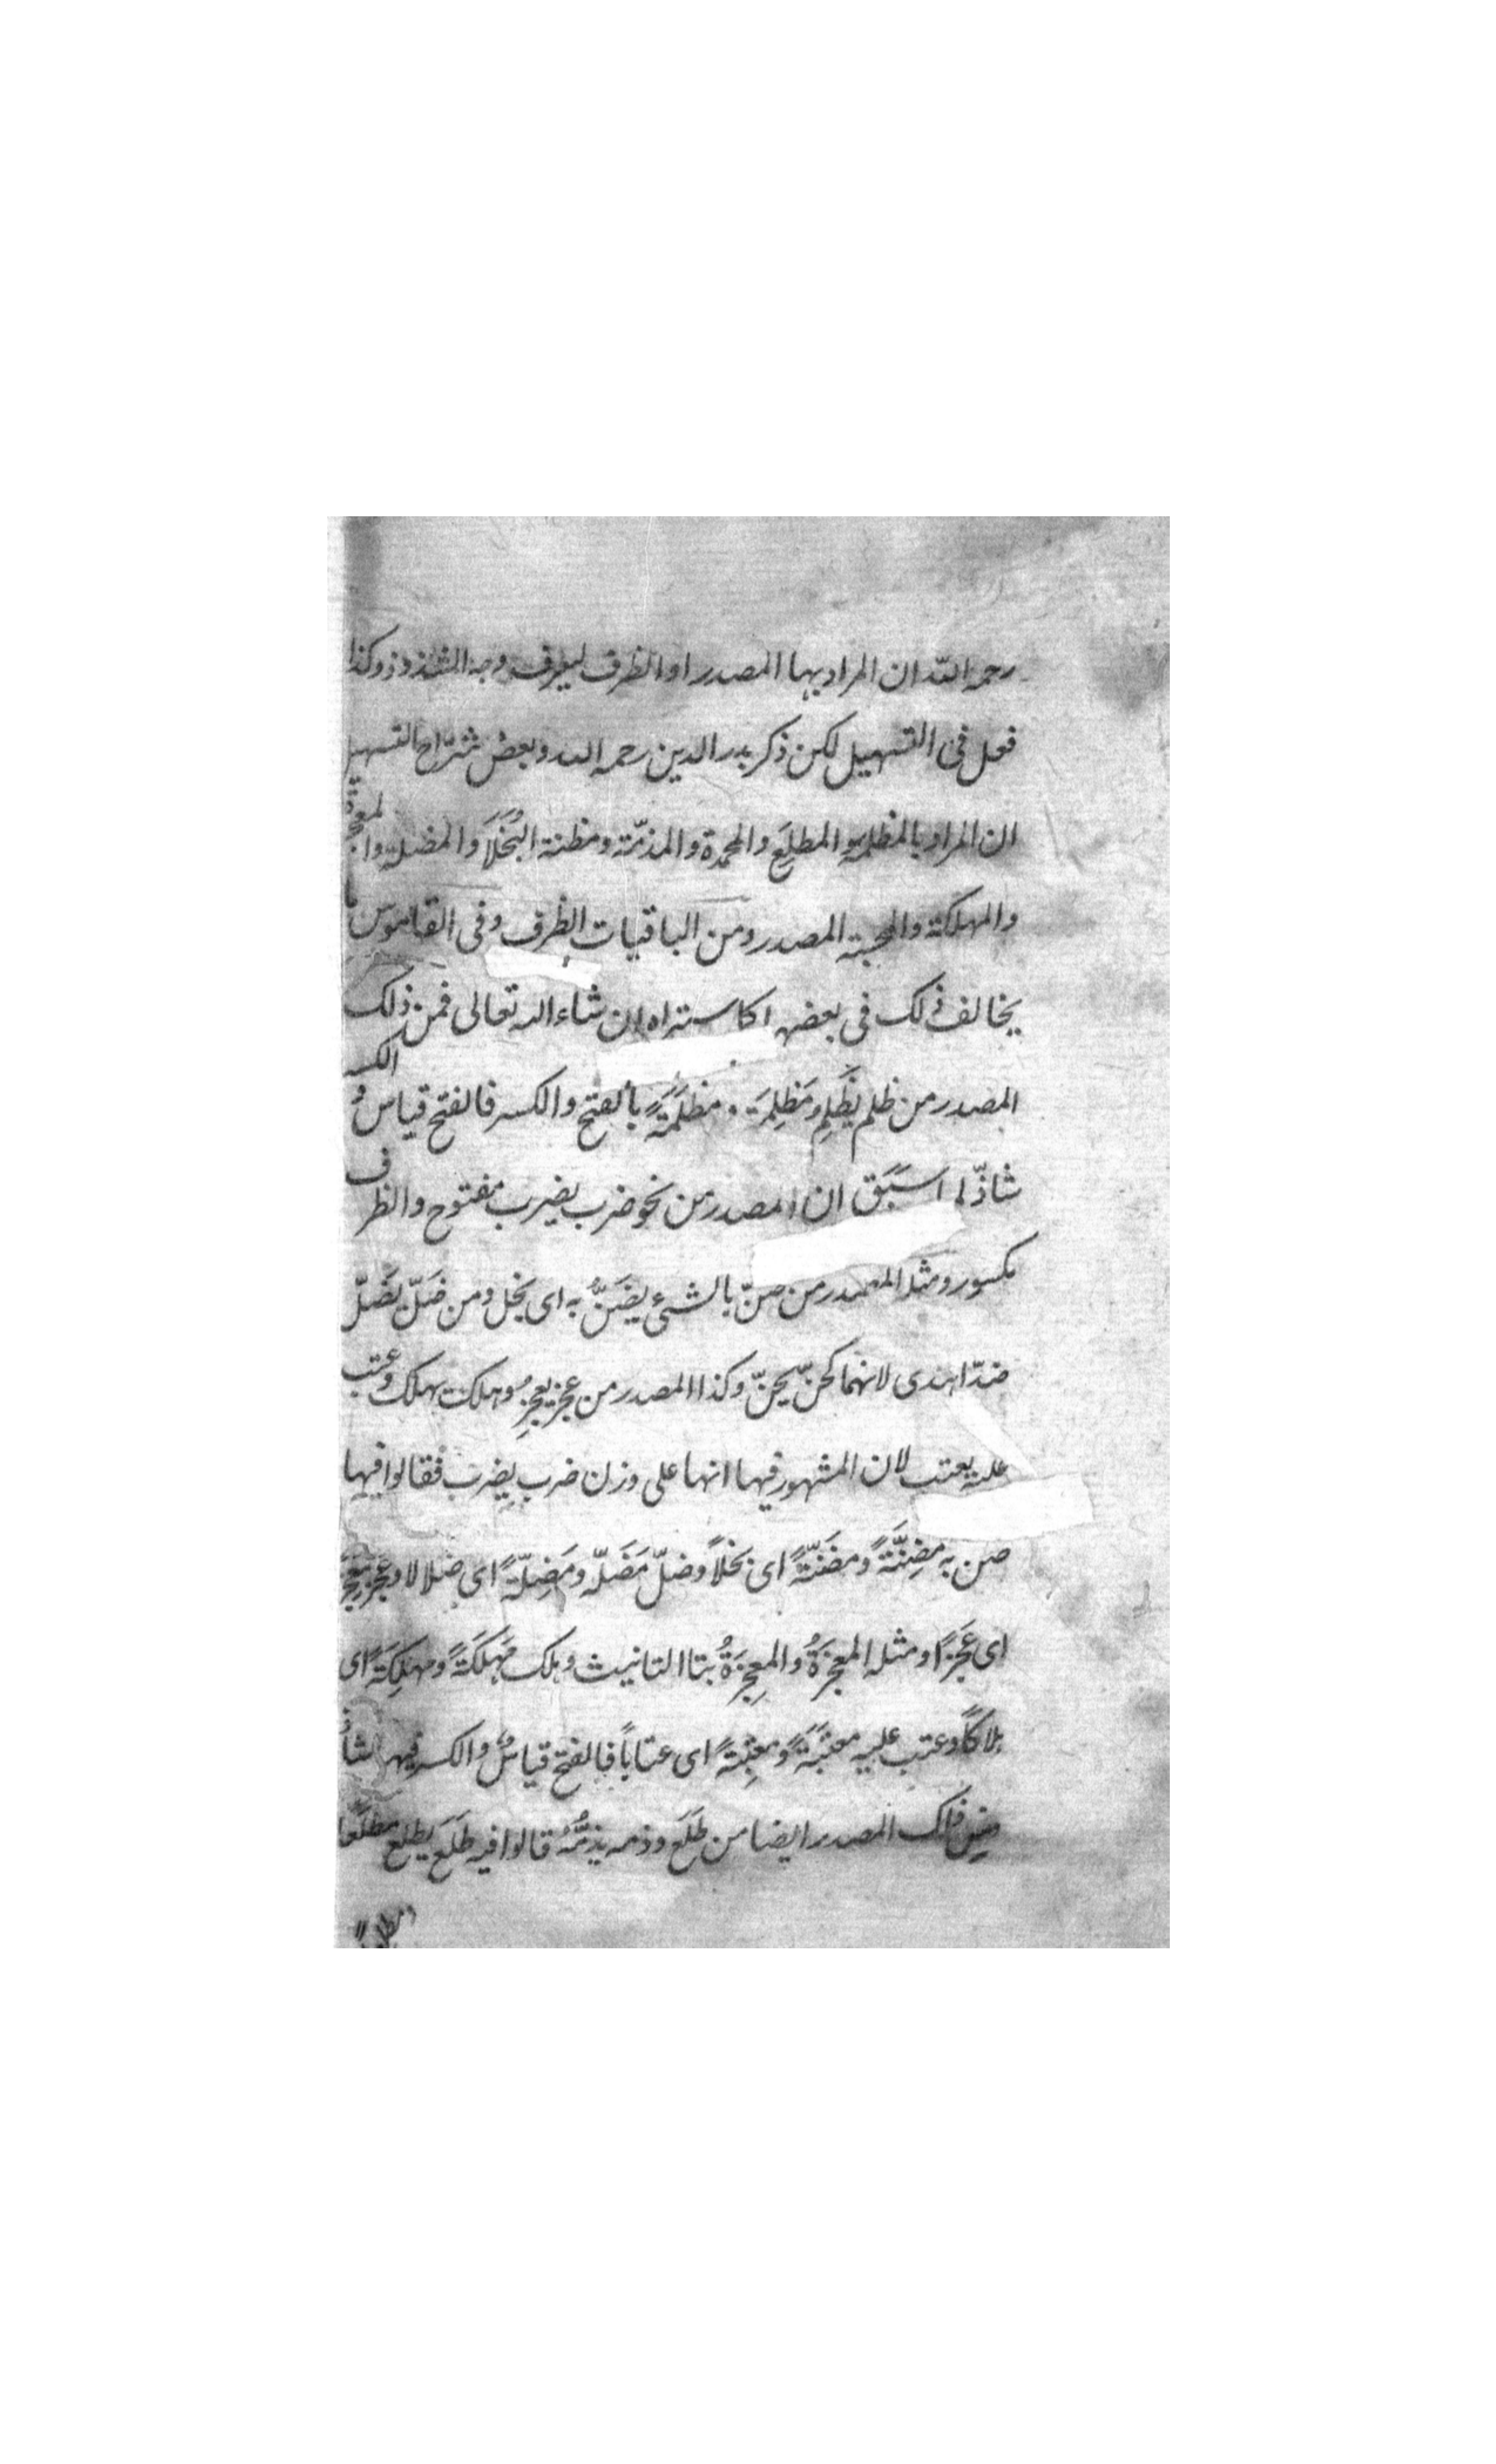 رحمه الله ان المراد بها المصدر او الظرف ليعرف وجه الشذوذ وكذا
فعل فى التسهيل لكن ذكر بدر الدين رحمه الله وبعض شرّاح التسهيل
ان المراد بالمظلمة والمطلِع والمحمدة والمذمّة ومظنة البُخَلَا والمضلة والمعجزة
والمهلكة والمحبة المصدر ومن الباقيات الظرف وفى القاموس ما
يخالف ذلك فى بعضها كما ستراه ان شاء الله تعالى فمن ذلك
المصدر من ظلم يَظلِم مَظلِمَة ومظلَمَةً بالفتح والكسر فالفتح قياس والكسر
شاذّ لما سَبَق ان المصدر من نحو ضرب يضرب مفتوح والظرف
مكسور ومثله المصدر من ضنّ بالشئ يضَنُّ به اى بخل ومن ضَلّ يضَلّ
ضدّ اهتدى لانهما كحنّ يحنّ وكذا المصدر من عجز يعجِز وهلك يهلك وعتب
عليه يعتب لان المشهور فيها انها على وزن ضرب يضرب فقالوا فيها
ضن به مضِنَّةً ومضَنّةً اى بخلاً وضلّ مَضَلّه ومَضِلّةً اى ضلالا وعجز معجِزَ
اى عَجزًا ومثله المعجزَةُ والمعجِزَةُ بتا التانيث وهلك مَهلَكَةً ومهلِكَةً اى
هلاكًا وعتب عليه معتَبَةً ومعتِبةً اى عتاباً فالفتح قياسٌ والكسر فيها شاذ
المصدر ايضا من طَلَع وذمه يذمُّهُ قالوا فيه طَلَع يطلع مطلَعًا